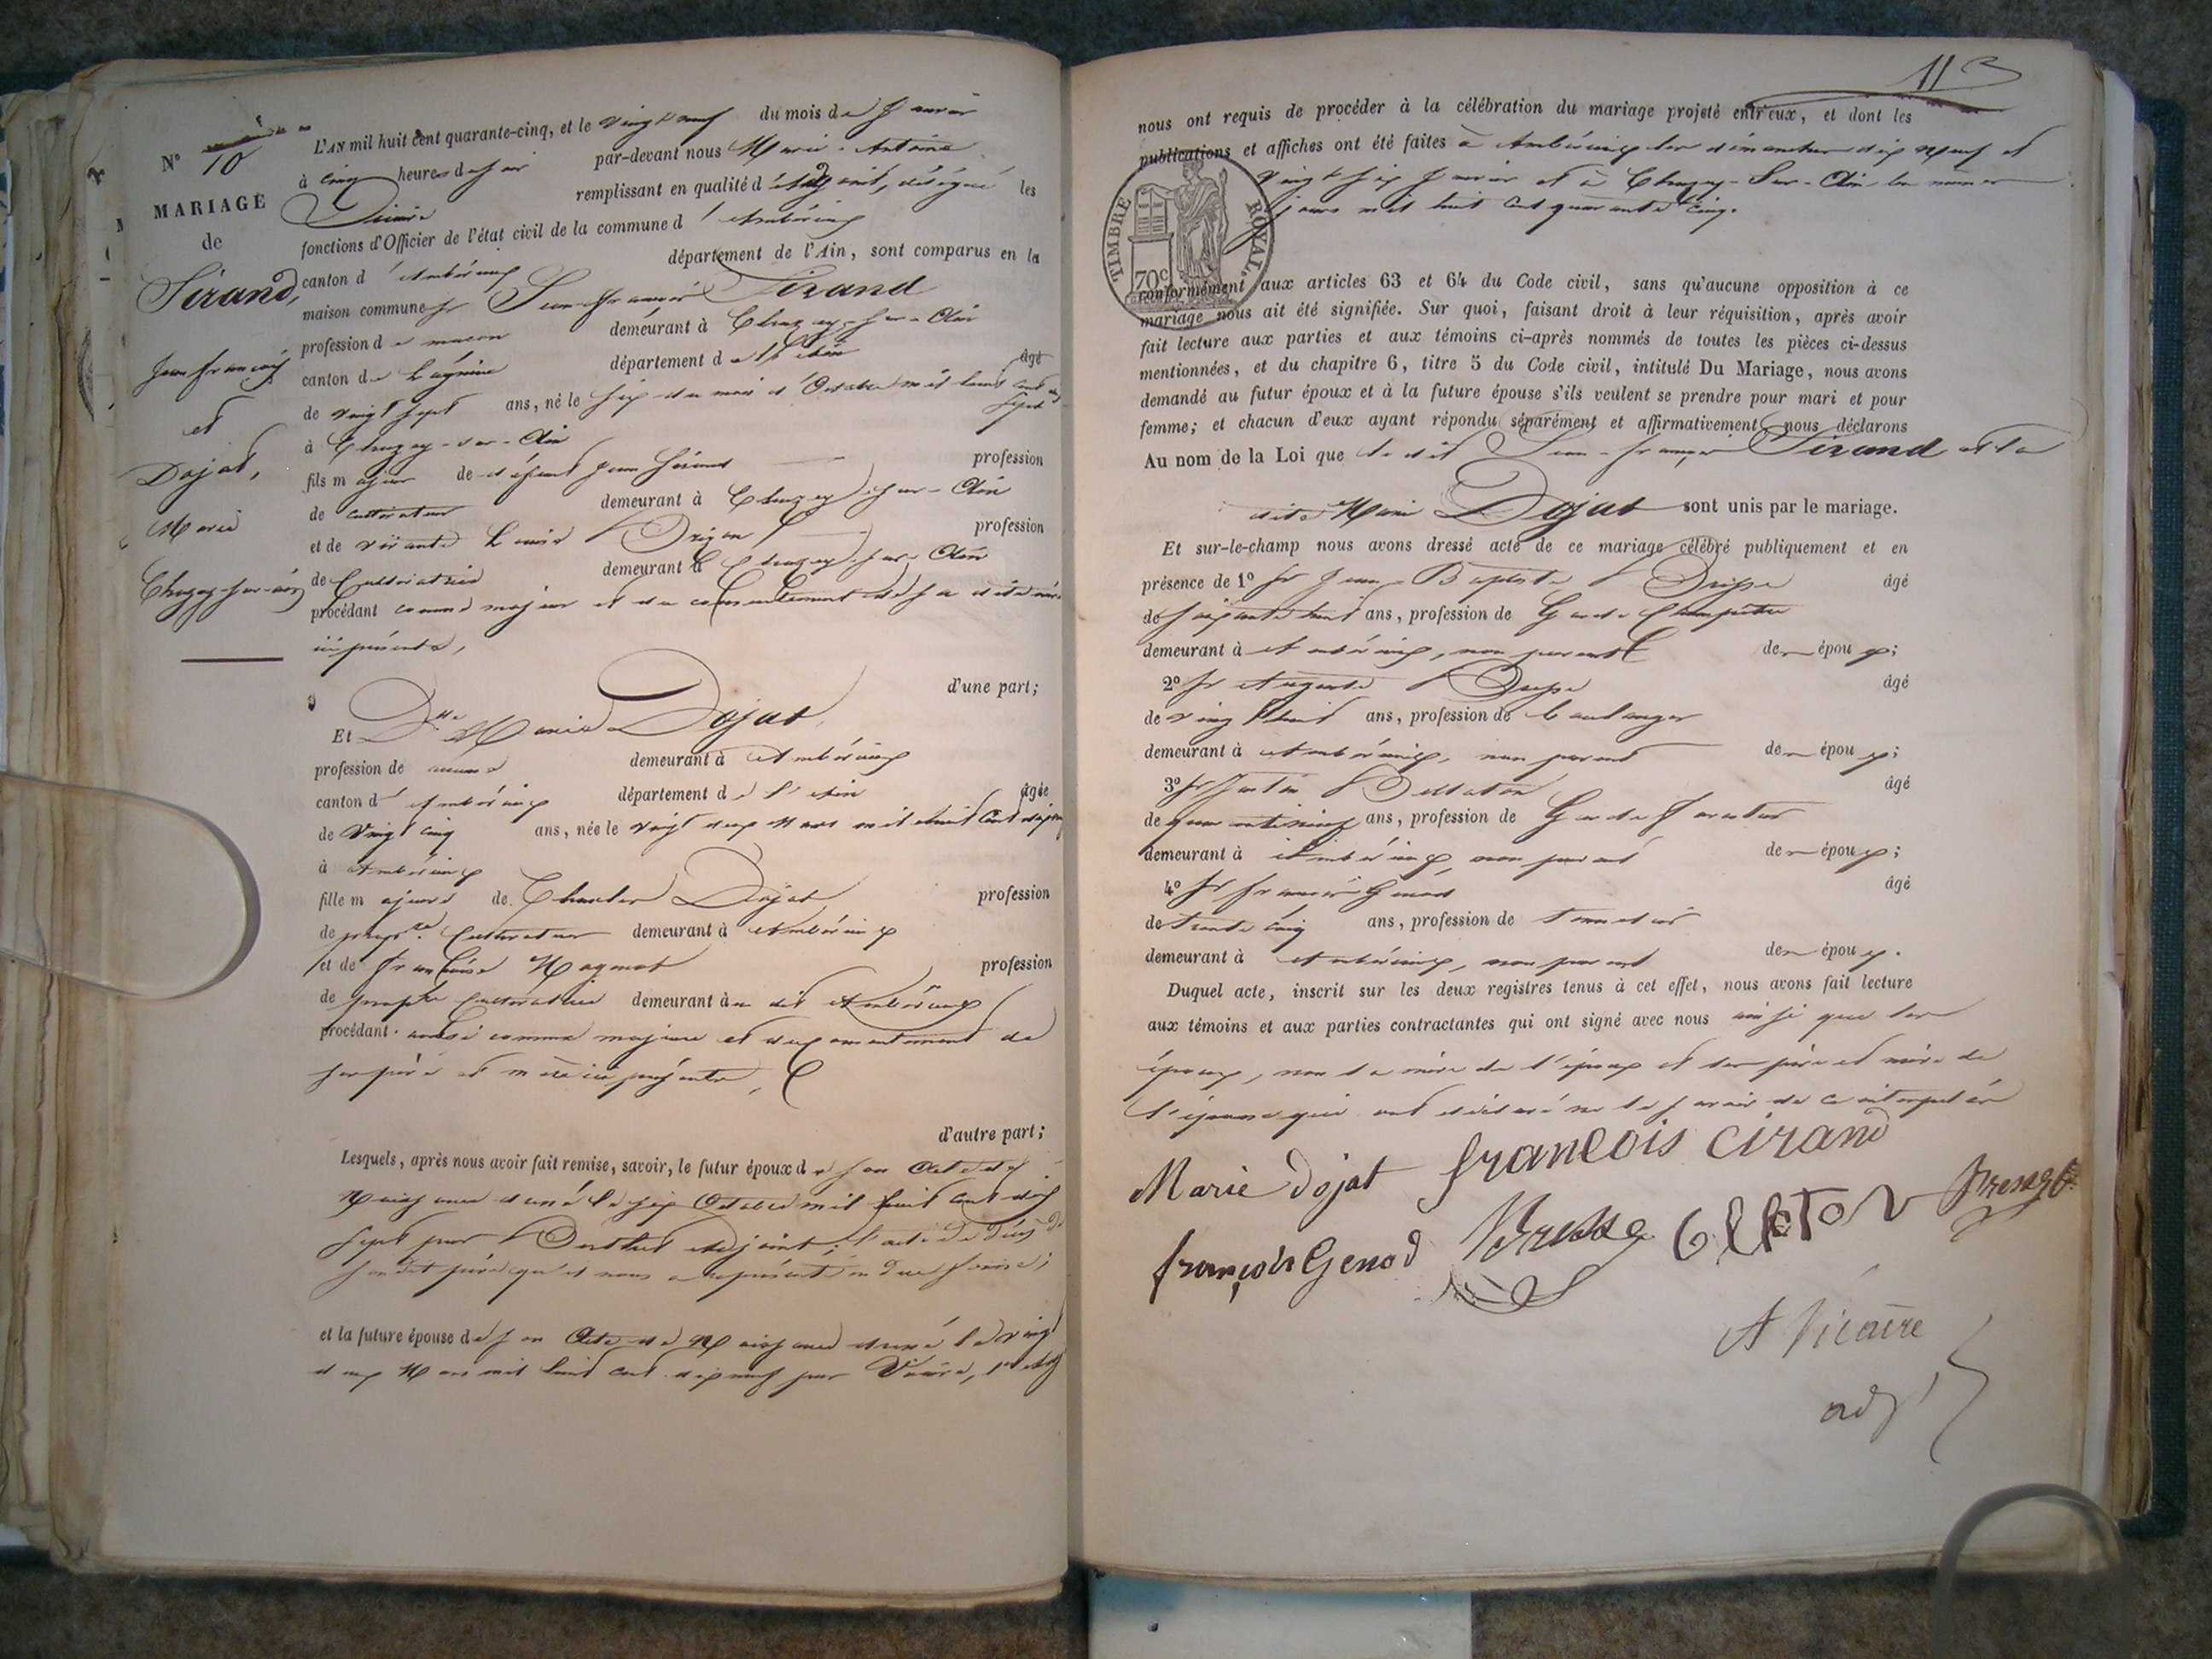 N° 10
MARIAGE
de
Sirand,
Jean françois
et
Dojat,
Marie
Chazey-sur-ain
L'AN mil huit cent quarante-cinq, et le vingt neuf du mois de Janvier
à cinq heures du soir par-devant nous Marie-Antoine
remplissant en qualité d'adjoint, délégué les
fonctions d'Officier de l'état civil de la commune d'Ambérieux
canton d'Ambérieux département de l'Ain, sont comparus en la
maison commune Sr Jean françois Sirand
profession de maçon demeurant à Chazey-sur-Ain
canton de Lagnieu département de l'Ain âgé
de vingt sept ans, né le six du mois d'Octobre mil huit cent dix sept
à Chazey-sur-Ain
fils majeur de défunt Jean Sirand profession
de cultivateur demeurant à Chazey-sur-Ain
et de vivante profession
de Cultivatrice demeurant à Chazey-sur-Ain
procédant comme majeur et du consentement de sa dite mère
ici présente,
d'une part;
Et Dlle Marie Dojat,
profession de demeurant à Ambérieux
canton d'Ambérieux département de l'Ain âgée
de vingt cinq ans, née le vingt deux Mars mil huit cent dix neuf
à Ambérieux
fille majeure de Charles Dojat profession
de propre Cultivateur demeurant à Ambérieux
et de françoise Magnat profession
de propre Cultivatrice demeurant au dit Ambérieux
procédant aussi comme majeure et du consentement de
ses père et mère ici présents,
d'autre part;
Lesquels, après nous avoir fait remise, savoir, le futur époux de son Acte de
Naissance du six Octobre mil huit cent dix
sept par adjoint; l'acte de décès de
son dit père qu'il nous a représenté en due forme;
et la future épouse de son Acte de Naissance le vingt
deux Mars mil huit cent dix neuf par
113
nous ont requis de procéder à la célébration du mariage projeté entr'eux, et dont les
publications et affiches ont été faites à Ambérieux les dimanches dix neuf et
vingt six Janvier et à Chazey-sur-Ain les mêmes
jours mil huit cent quarante cinq.
TIMBRE ROYAL
70c
conformément aux articles 63 et 64 du Code civil, sans qu'aucune opposition à ce
mariage nous ait été signifiée. Sur quoi, faisant droit à leur réquisition, après avoir
fait lecture aux parties et aux témoins ci-après nommés de toutes les pièces ci-dessus
mentionnées, et du chapitre 6, titre 5 du Code civil, intitulé Du Mariage, nous avons
demandé au futur époux et à la future épouse s'ils veulent se prendre pour mari et pour
femme; et chacun d'eux ayant répondu séparément et affirmativement, nous déclarons
Au nom de la Loi que le dit Jean-françois Sirand et la
dite Marie Dojat sont unis par le mariage.
Et sur-le-champ nous avons dressé acte de ce mariage célébré publiquement et en
présence de 1° Sr Jean-Baptiste âgé
de soixante huit ans, profession de Garde Champêtre
demeurant à Ambérieux, non parent des époux;
2° Sr Auguste âgé
de vingt huit ans, profession de boulanger
demeurant à Ambérieux, non parent des époux;
3° Sr Justin âgé
de quarante ans, profession de Garde forestier
demeurant à Ambérieux, non parent des époux;
4° Sr françois Genod âgé
de trente cinq ans, profession de
demeurant à Ambérieux, non parent des époux.
Duquel acte, inscrit sur les deux registres tenus à cet effet, nous avons fait lecture
aux témoins et aux parties contractantes qui ont signé avec nous ainsi que les
époux, non la mère de l'époux et les père et mère de
l'épouse qui ont déclaré ne le savoir de ce interpellés
Marie Dojat françois cirand
françois Genod
adj